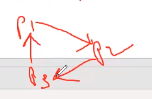 P1
P2
P3